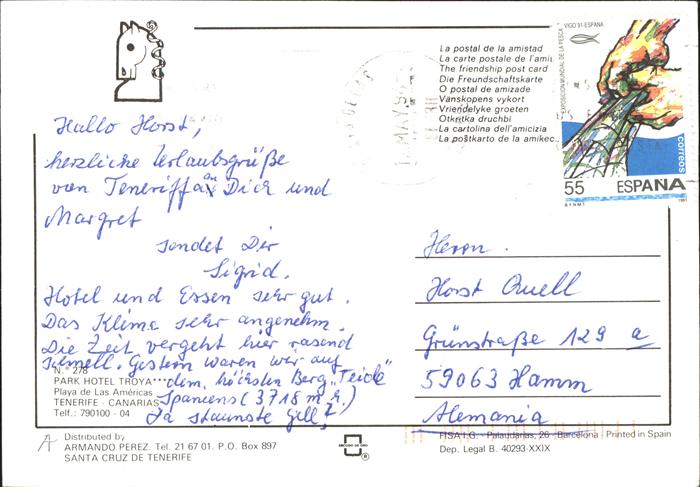 La postal de la amistad
La carte postale de l'ami
The friendship post card
Die Freundschaftskarte
O postal de amizade
Vanskopens vykort
Vriendelyke groeten
Otkritka druchbi
La cartolina dell'amicizia
La poŝtkarto de la amikec
VIGO'91-ESPAÑA
EXPOSICION MUNDIAL DE LA PESCA
correos
55 ESPAÑA
F.N.M.T. 1991
MAY
Hallo Horst,
herzliche Urlaubsgrüße
von Teneriffa an Dich und
Margret
sendet Dir
Sigrid.
Hotel und Essen sehr gut.
Das Klima sehr angenehm.
Die Zeit vergeht hier rasend
schnell. Gestern waren wir auf
dem höchsten Berg "Teide"
Spaniens (3718 m h.)
Da staunste gell?
Herrn.
Horst Quell
Grünstraße 129 a
59063 Hamm
Alemania
N.º 278
PARK HOTEL TROYA***
Playa de Las Américas
TENERIFE - CANARIAS
Telf.: 790100 - 04
A Distributed by
ARMANDO PEREZ. Tel. 21 67 01. P.O. Box 897
SANTA CRUZ DE TENERIFE
ESCUDO DE ORO
®
FISA I.G. - Palaudarias, 26 - Barcelona - Printed in Spain
Dep. Legal B. 40293-XXIX